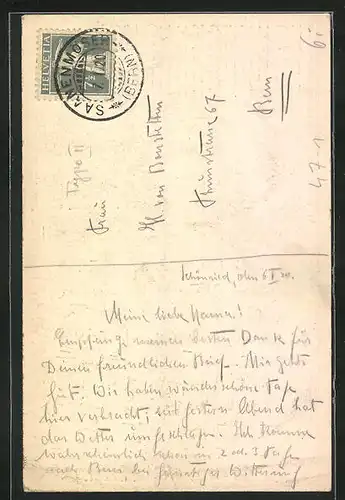 HELVETIA
7½
SAANENMÖSER
(BERN)
6.-
471
Type II
Frau
von Bonstetten
Thunstrasse 67
Bern
Schönried, den 6 I 20.
Meine liebe Mama!
Empfange meinen besten Dank für
Deinen freundlichen Brief. Mir geht's
gut. Wir haben wunderschöne Tage
hier verbracht, seit gestern Abend hat
das Wetter umgeschlagen. Ich komme
wahrscheinlich schon in 2 od. 3 Tage
nach Bern bei Witterung